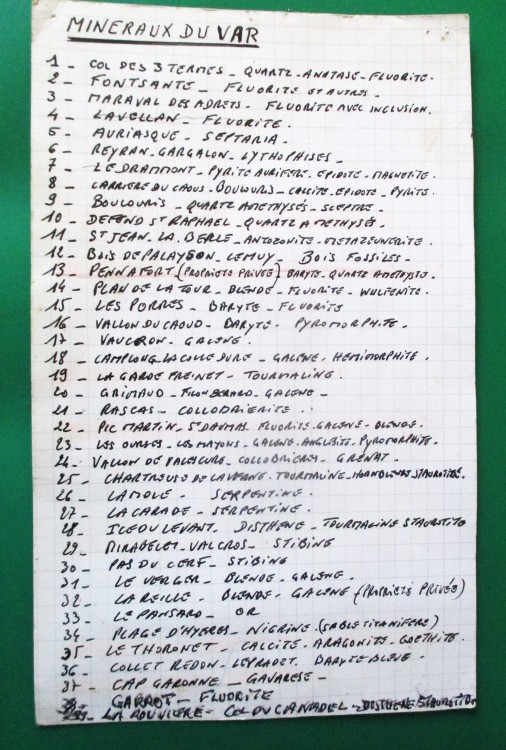 MINERAUX DU VAR
1 - COL DES 3 TERMES - QUARTZ - ANATASE - FLUORITE.
2 - FONTSANTE - FLUORITE ET AUTRES.
3 - MARAVAL DES ADRETS - FLUORITE AVEC INCLUSION.
4 - LAVELLAN - FLUORITE.
5 - AURIASQUE - SEPTARIA.
6 - REYRAN - GARGALON - LYTHOPHISES -
7 - LE DRAMMONT - PYRITE AURIFERE - EPIDOTE - MAGNETITE.
8 - CARRIERE DU CAOUS - BOULOURIS - CALCITE - EPIDOTE - PYRITE.
9 - BOULOURIS - QUARTZ AMETHYSÉS - SCEPTRE.
10 - DEFEND ST RAPHAEL - QUARTZ AMETHYSÉ.
11 - ST JEAN - LA - BERLE - ANTOZONITE - METAZEUNERITE.
12 - BOIS DE PALAYSON - LE MUY - BOIS FOSSILES -
13 - PENNAFORT (PROPRIETE PRIVÉE) BARYTE - QUARTZ AMETHYSTE.
14 - PLAN DE LA TOUR - BLENDE - FLUORITE - WULFENITE.
15 - LES PORRES - BARYTE - FLUORITE
16 - VALLON DU CAOUD - BARYTE - PYROMORPHITE -
17 - VAUCRON - GALENE.
18 - CAMPLONG - LACOLLEDURE - GALENE - HEMIMORPHITE.
19 - LA GARDE FREINET - TOURMALINE.
20 - GRIMAUD - FILON BERARD - GALENE -
21 - RASCAS - COLLOBRIERITE .
22 - PIC MARTIN - ST DAUMAS - FLUORITE - GALENE - BLENDE.
23 - LES OURSES - LES MAYONS - GALENE - ANGLESITE - PYROMORPHITE.
24 - VALLON DE VALESCURE - COLLOBRIERES - GRENAT.
25 - CHARTREUSE DE LAVERNE - TOURMALINE - HORNBLENDE STAUROTIDE.
26 - LA MOLE - SERPENTINE.
27 - LA CARADE - SERPENTINE.
28 - ILE DU LEVANT - DISTHENE - TOURMALINE STAUROTITE
29 - MIRABELET - VALCROS - STIBINE
30 - PAS DU CERF - STIBINE
31 - LE VERGER - BLENDE - GALENE.
32 - LA REILLE - BLENDE - GALENE (PROPRIETE PRIVÉE)
33 - LE PANSARD - OR
34 - PLAGE D'HYERES - NIGRINE - (SABLE TITANIFERE)
35 - LE THORONET - CALCITE - ARAGONITE - GOETHITE.
36 - COLLET REDON - LEYRADET - BARYTE BLEUE -
37 - CAP GARONNE - GAVARESE -
38 - GARROT - FLUORITE
39 - LA ROUVIERE - COL DU CANADEL - DISTHENE